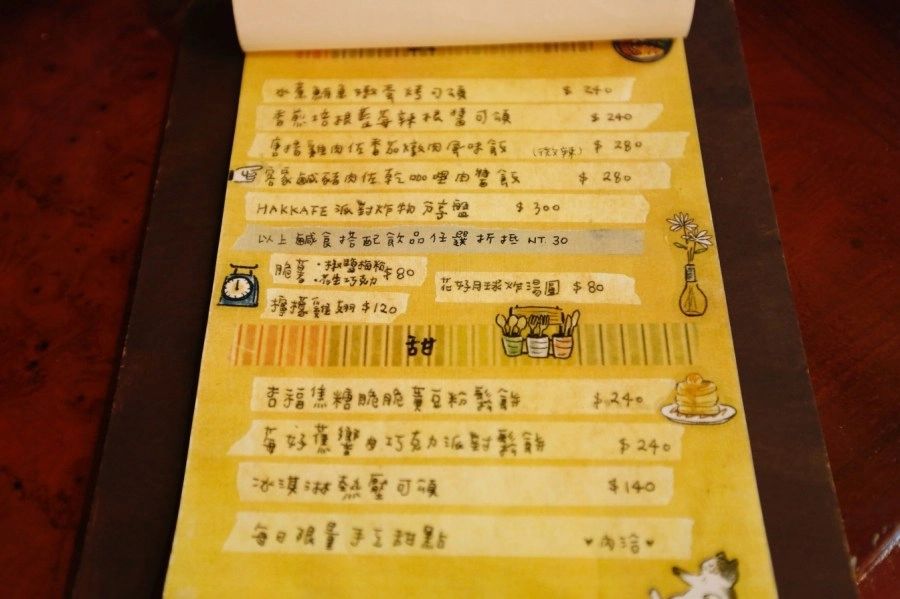 水薰鮪魚嫩蛋烤可頌 $ 240
香煎培根藍莓辣根醬可頌 $ 240
唐揚雞肉佐香茄燉肉風味飯 (微辣) $ 280
客家鹹豬肉佐乾咖哩肉醬飯 $ 280
HAKKAFE 派對炸物分享盤 $ 300
以上鹹食搭配飲品任選折抵 NT.30
脆薯 ·椒鹽梅粉 $80
·花生巧克力
花好月球炸湯圓 $ 80
檸檬雞翅 $120
甜
杏福焦糖脆脆黃豆粉鬆餅 $240
莓好蕉響曲巧克力派對鬆餅 $240
冰淇淋熱壓可頌 $140
每日限量手工甜點 ♥內洽♥